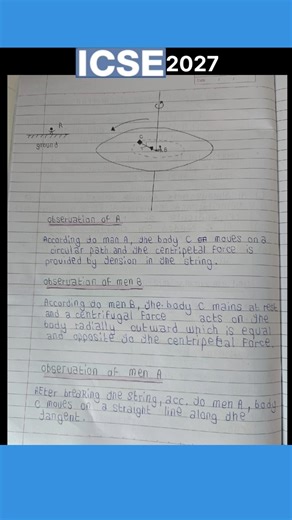 ICSE 2027
A
ground
C
B
observation of A
According do man A, dhe body C moves on a
circular path and dhe centripetal force is
provided by dension in dhe string.
observation of men B
According do men B, dhe body C mains at rest
and a centrifugal force acts on dhe
body radially outward which is equal
and opposite do dhe centripetal force.
observation of men A
After breaking dhe string, acc. do men A, body
C moves on a straight line along dhe
dangent.